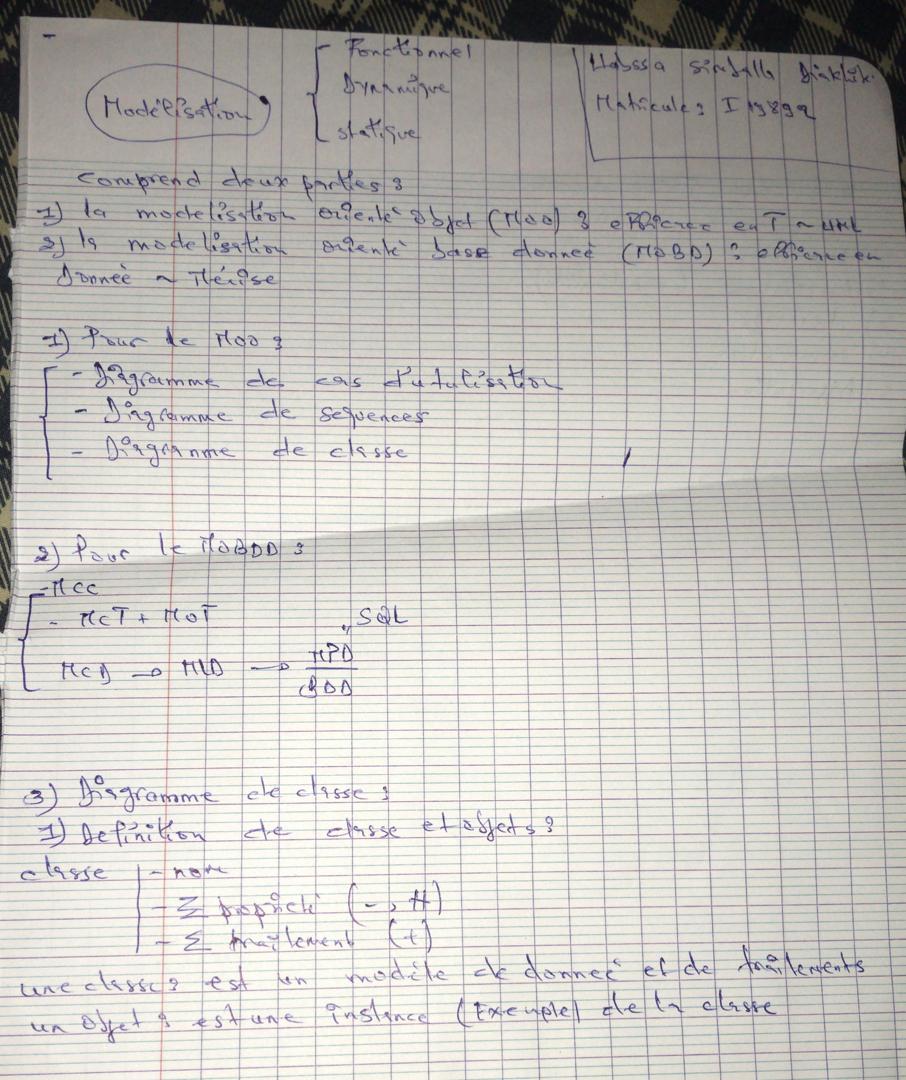 Modélisation
- Fonctionnel
Dynamique
- statique
Matricule : I
comprend deux parties :
1) la modelisation orienté objet (MOO) : efficace en T ~ UML
2) la modelisation orienté base donneé (MOBD) : efficace en
Donneé ~ Mérise
1) Pour le MOO :
- Diagramme de cas d'utulisation
- Diagramme de sequences
- Diagramme de classe
2) Pour le MOBDD :
- MCC
- MCT + MOT
SQL
MCD → MLD → MPD
BDD
3) Diagramme de classe :
1) Definition de classe et objets :
classe
- nom
- Σ proprieté (-, #)
- Σ traitement (+)
une classe : est un modèle de donneé et de traitements
un objet : est une instance (Exemple) de la classe